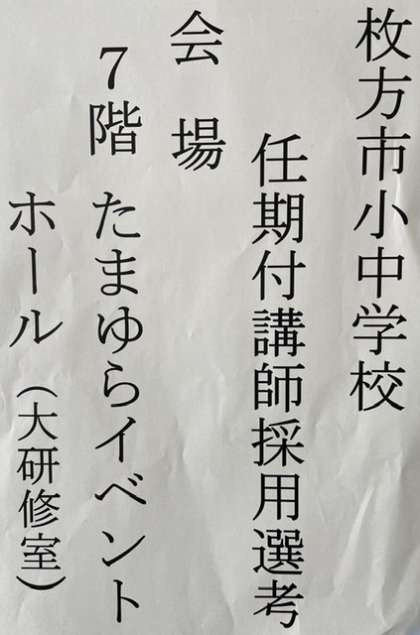 枚方市小中学校
任期付講師採用選考
会　場
７階　たまゆらイベント
ホール（大研修室）